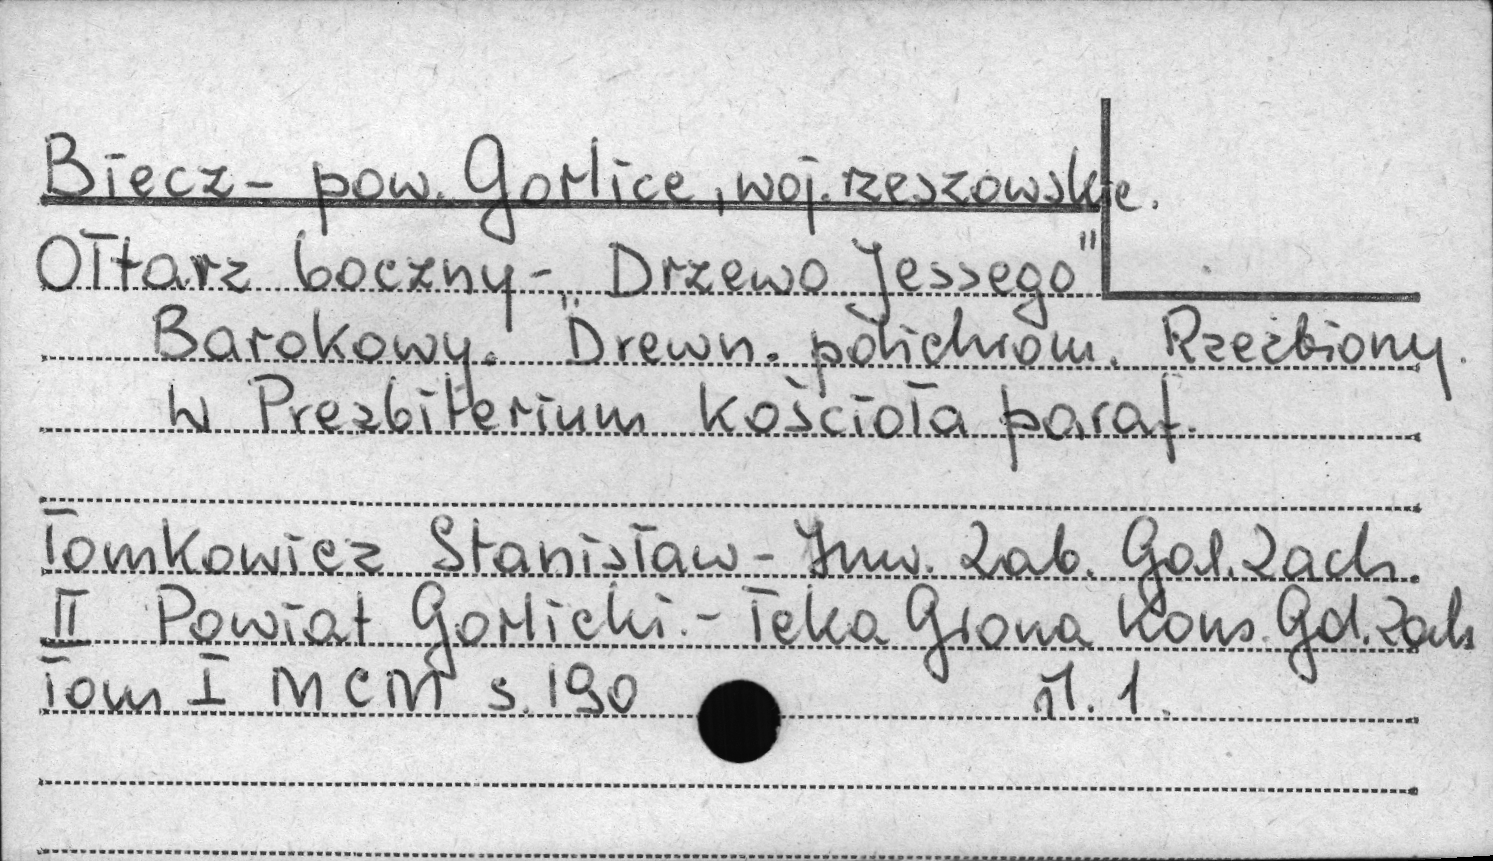 Biecz - pow. Gorlice, woj. rzeszowskie.
Ołtarz boczny - „Drzewo Jessego"
Barokowy. Drewn. polichrom. Rzeźbiony.
W Prezbiterium kościoła paraf.
Tomkowicz Stanisław - Inw. Zab. Gal. Zach.
II Powiat Gorlicki. - Teka Grona Kons. Gal. Zach
Tom I MCM s. 190 il. 1.